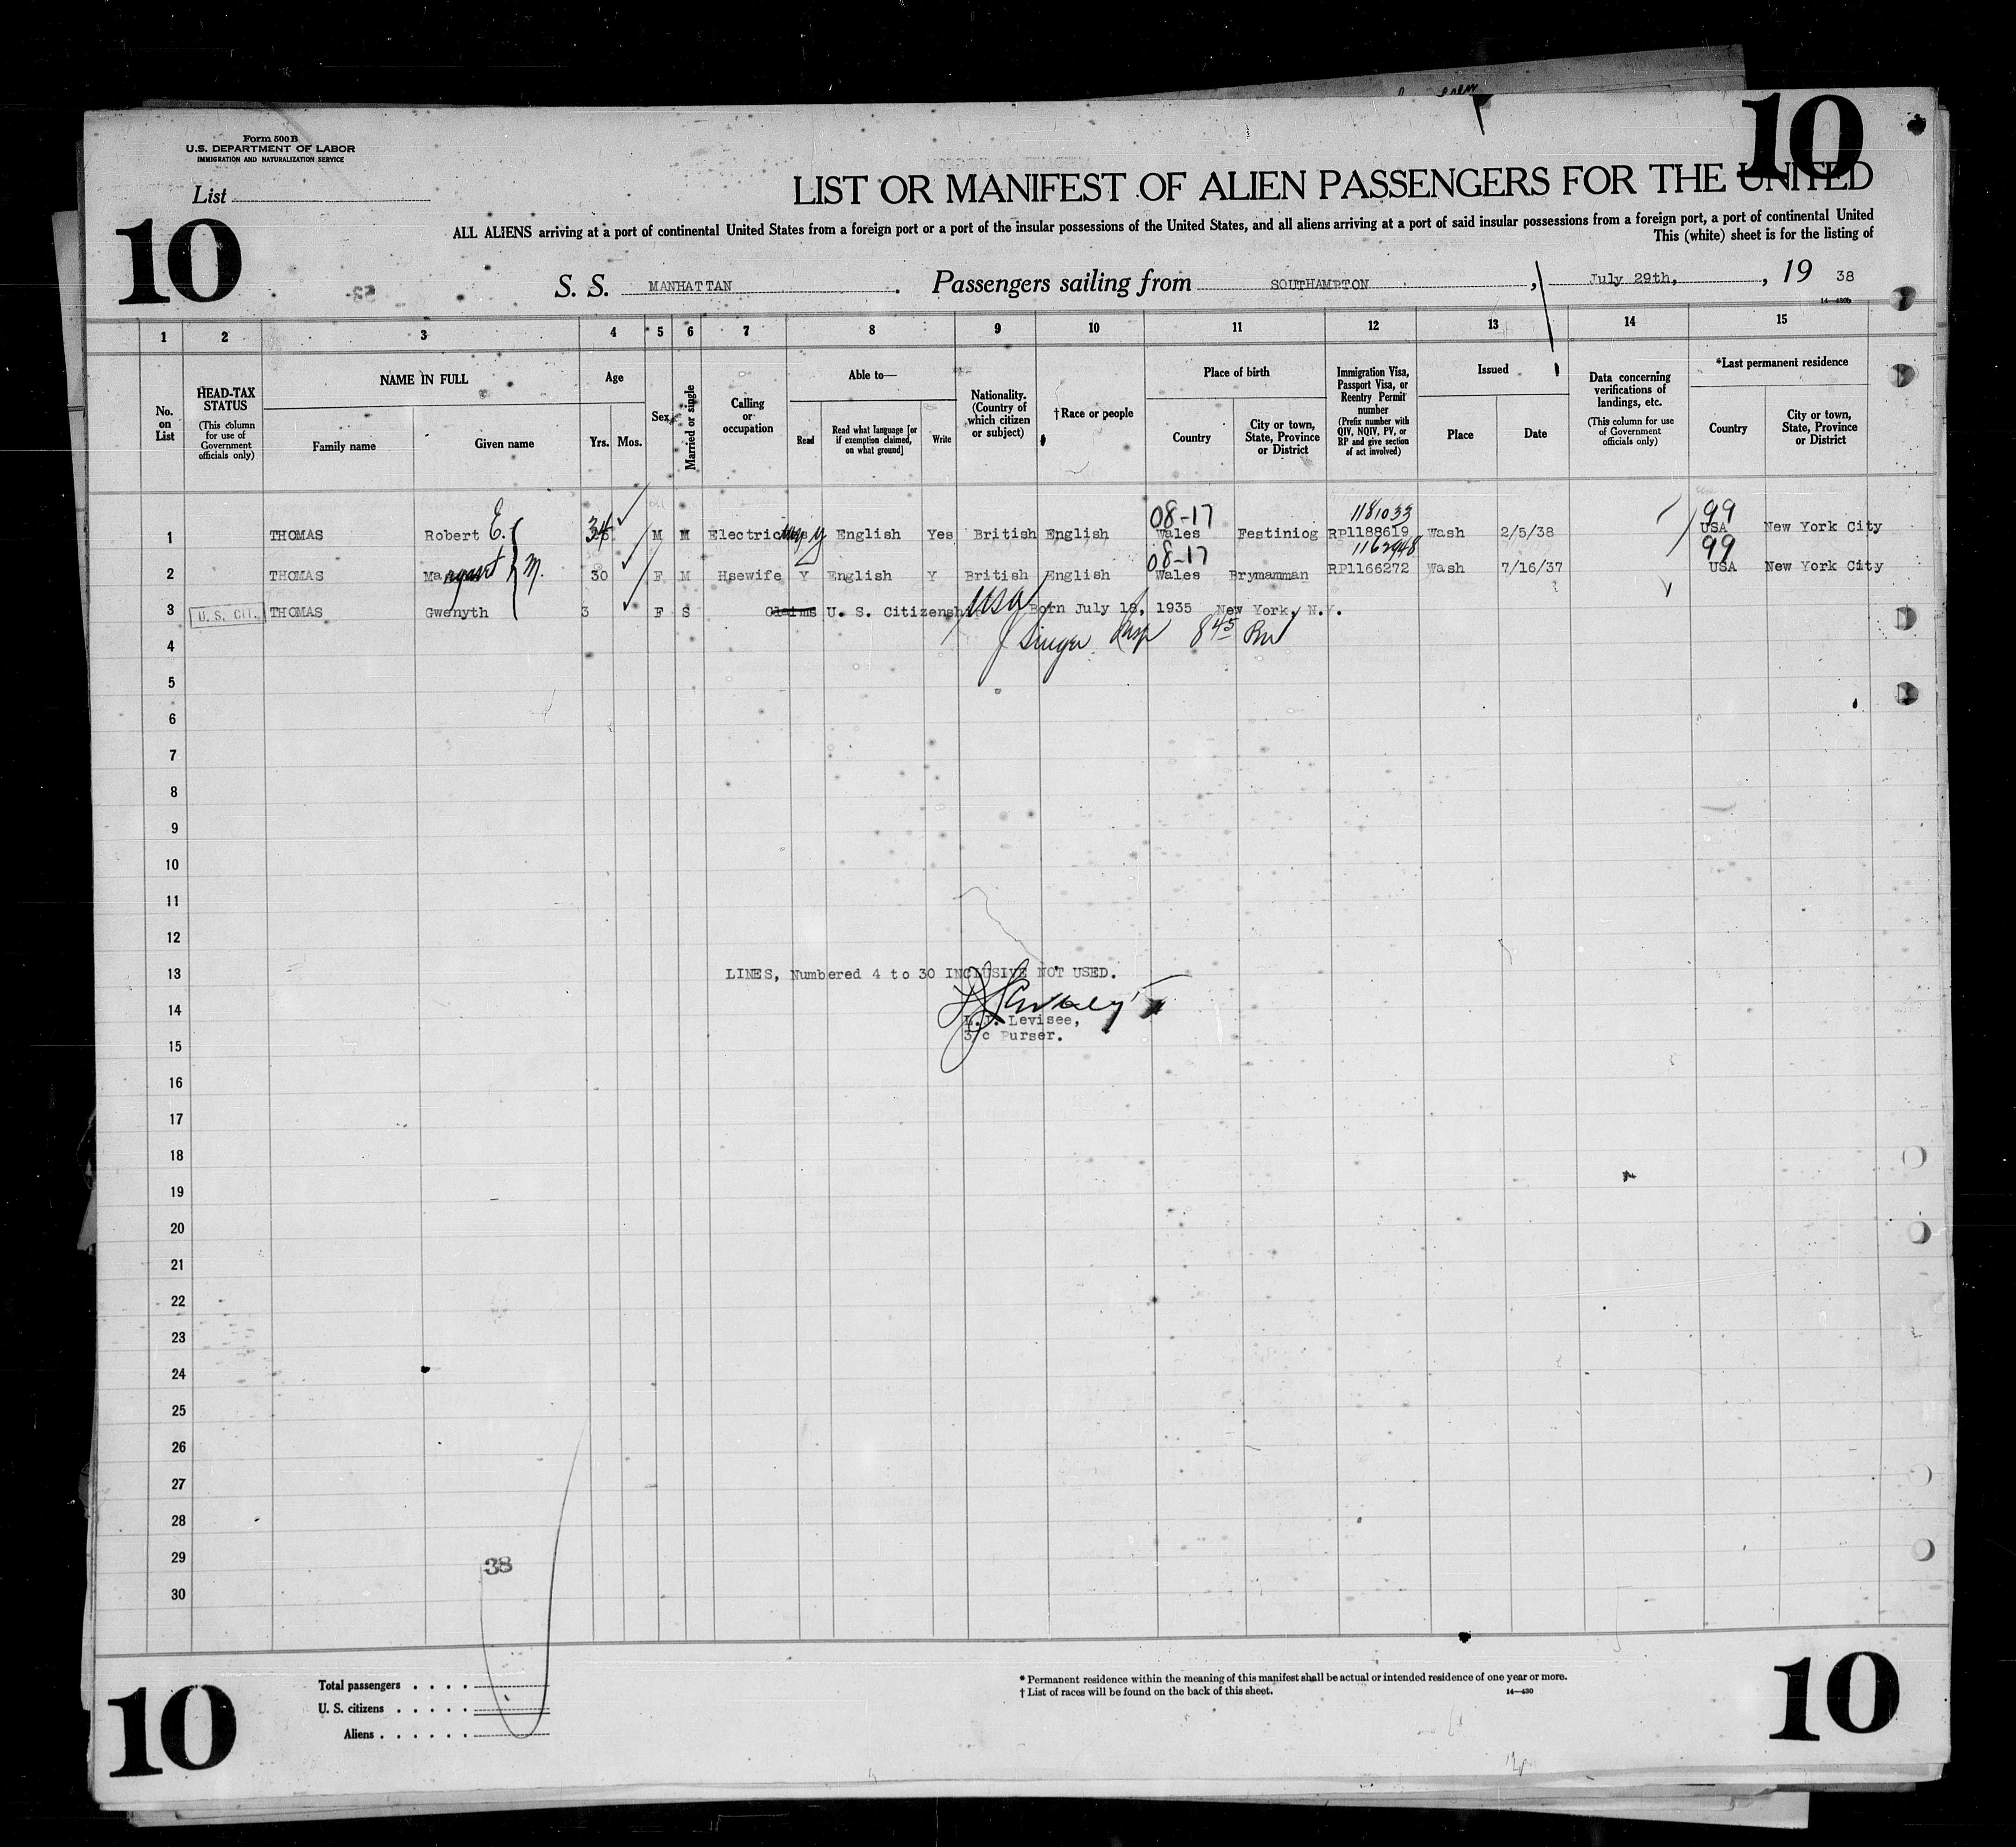 10
Form 500 B
U.S. DEPARTMENT OF LABOR
IMMIGRATION AND NATURALIZATION SERVICE
List
10
LIST OR MANIFEST OF ALIEN PASSENGERS FOR THE UNITED
ALL ALIENS arriving at a port of continental United States from a foreign port or a port of the insular possessions of the United States, and all aliens arriving at a port of said insular possessions from a foreign port, a port of continental United
This (white) sheet is for the listing of
S. S. MANHATTAN. Passengers sailing from SOUTHAMPTON, July 29th, , 19 38
14—430b
1 2 3 4 5 6 7 8 9 10 11 12 13 14 15
No. on List
HEAD-TAX STATUS (This column for use of Government officials only)
NAME IN FULL
Family name Given name
Age
Yrs. Mos.
Sex
Married or single
Calling or occupation
Able to—
Read
Read what language [or if exemption claimed, on what ground]
Write
Nationality. (Country of which citizen or subject)
†Race or people
Place of birth
Country
City or town, State, Province or District
Immigration Visa, Passport Visa, or Reentry Permit number (Prefix number with QIV, NQIV, PV, or RP and give section of act involved)
Issued
Place Date
Data concerning verifications of landings, etc. (This column for use of Government officials only)
*Last permanent residence
Country
City or town, State, Province or District
08-17 1181033 99
1 THOMAS Robert E. 34 M M English Yes British English Wales Festiniog RP1188619 Wash 2/5/38 USA New York City
08-17 1162948 99
2 THOMAS Margaret M. 30 F M Hsewife Y English Y British English Wales Brymamman RP1166272 Wash 7/16/37 USA New York City
3 U. S. CIT. THOMAS Gwenyth 3 F S Claims U. S. Citizenship USA Born July 18, 1935 New York, N.Y.
4 Singer 8 45
5
6
7
8
9
10
11
12
13 LINES, Numbered 4 to 30 INCLUSIVE NOT USED.
14
L.J. Levisee,
15 3/c Purser.
16
17
18
19
20
21
22
23
24
25
26
27
28
29 38
30
Total passengers . . . .
U. S. citizens . . . . .
Aliens . . . . . .
* Permanent residence within the meaning of this manifest shall be actual or intended residence of one year or more.
† List of races will be found on the back of this sheet. 14—430
10
10